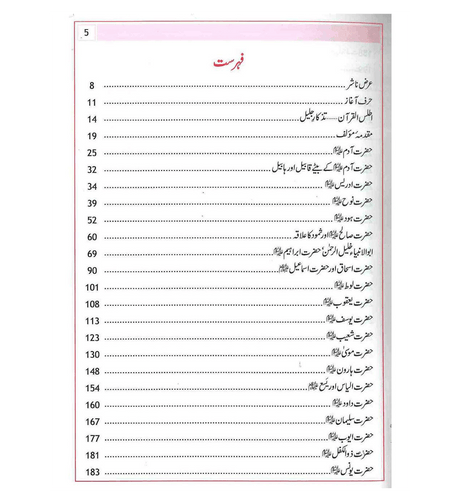 5
فہرست
عرض ناشر ........ 8
حرف آغاز ........ 11
اطلس القرآن ...... تذکار جلیل ........ 14
مقدمۂ مؤلف ........ 19
حضرت آدم علیہ السلام ........ 25
حضرت آدم علیہ السلام کے بیٹے قابیل اور ہابیل ........ 32
حضرت ادریس علیہ السلام ........ 34
حضرت نوح علیہ السلام ........ 39
حضرت ہود علیہ السلام ........ 52
حضرت صالح علیہ السلام اور ثمود کا علاقہ ........ 60
ابوالانبیاء خلیل الرحمٰن حضرت ابراہیم علیہ السلام ........ 69
حضرت اسحاق اور حضرت اسماعیل علیہما السلام ........ 90
حضرت لوط علیہ السلام ........ 101
حضرت یعقوب علیہ السلام ........ 108
حضرت یوسف علیہ السلام ........ 113
حضرت شعیب علیہ السلام ........ 123
حضرت موسیٰ علیہ السلام ........ 130
حضرت ہارون علیہ السلام ........ 148
حضرت الیاس اور یسع علیہما السلام ........ 154
حضرت داود علیہ السلام ........ 160
حضرت سلیمان علیہ السلام ........ 167
حضرت ایوب علیہ السلام ........ 177
حضرت ذوالکفل علیہ السلام ........ 181
حضرت یونس علیہ السلام ........ 183